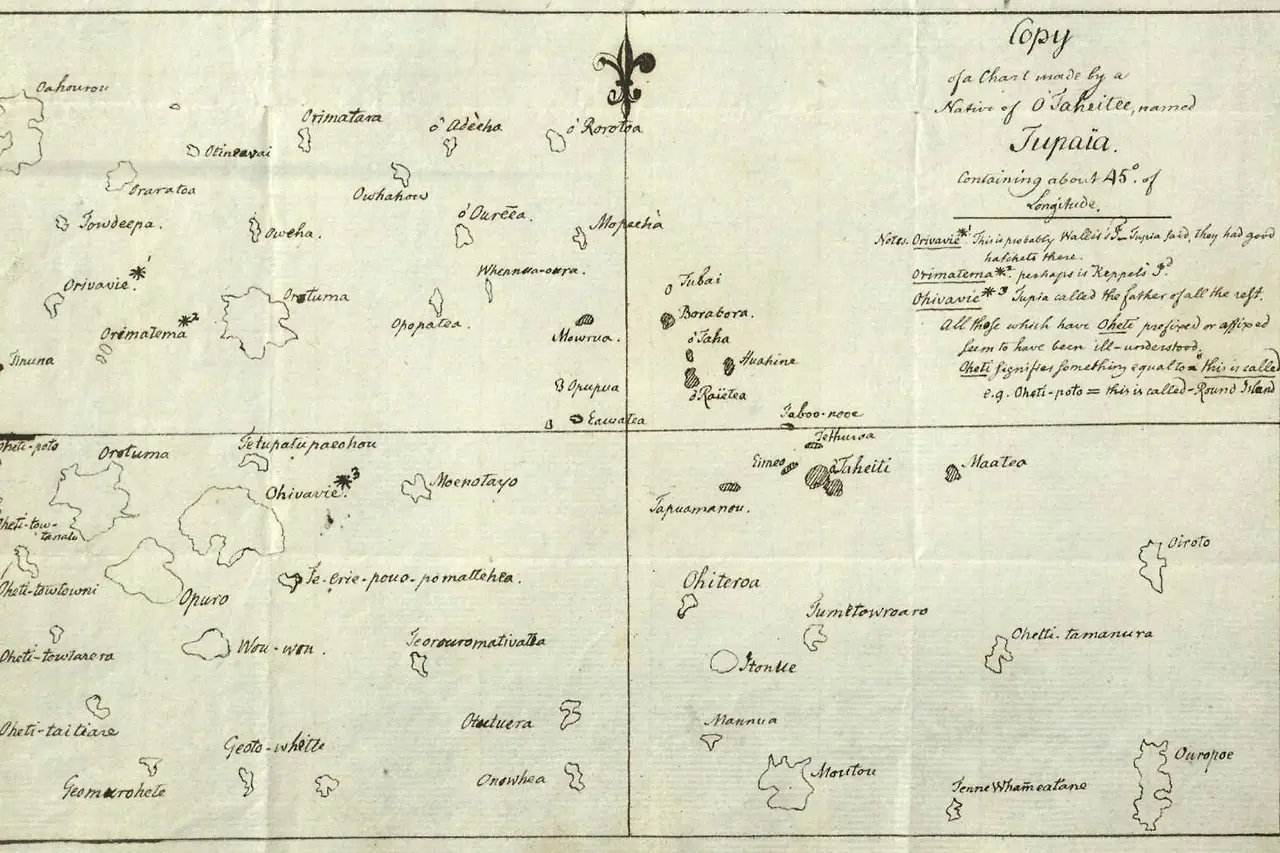 Copy
of a Chart made by a
Native of O'Taheitee, named
Tupaïa.
Containing about 45° of
Longitude.
Notes. Orivavie*1 This is probably Wallis's I.d Tupia said, they had good
hatchets there.
Orimatema*2 perhaps is Keppel's I.d
Ohivavie*3 Tupia called the father of all the rest.
All those which have Oheti prefixed or affixed
seem to have been ill-understood.
Oheti signifies something equal to = this is called
e.g. Oheti-poto = this is called - Round Island
Oahourou
Orimatara
ò Adèeha
ò Rorotoa
Otineavai
Oraratoa
Owhahow
Towdeepa.
Oweha.
o' Oureea.
Mopeeha
Whennua-oura.
Orivavie*1
Orotuma
Opopatea.
Orimatema*2
Tinuna
Mowrua.
Opupua
Eawatea
Tubai
Borabora.
o'Taha
Huahine
o'Raietea
Taboo-nooe
Tethuroa
Eimeo
o'Taheiti
Maatea
Tapuamanou.
Oheti-poto
Orotuma
Tetupatupaeohou
Ohivavie*3
Moenotayo
Oheti-tow-
tanato
Oheti-towtowni
Opuro
Te-Erie-pouo-pomattehea.
Oheti-towtarera
Wou-wou.
Teorouromativatoa
Oheti-taitiare
Geoto-whitte
Geomarohete
Otutuera
Onowhea
Ohiteroa
Tumetowroaro
Oiroto
Itonue
Ohetti-tamanura
Mannua
Moutou
Tenne Whammeatane
Ouropoe